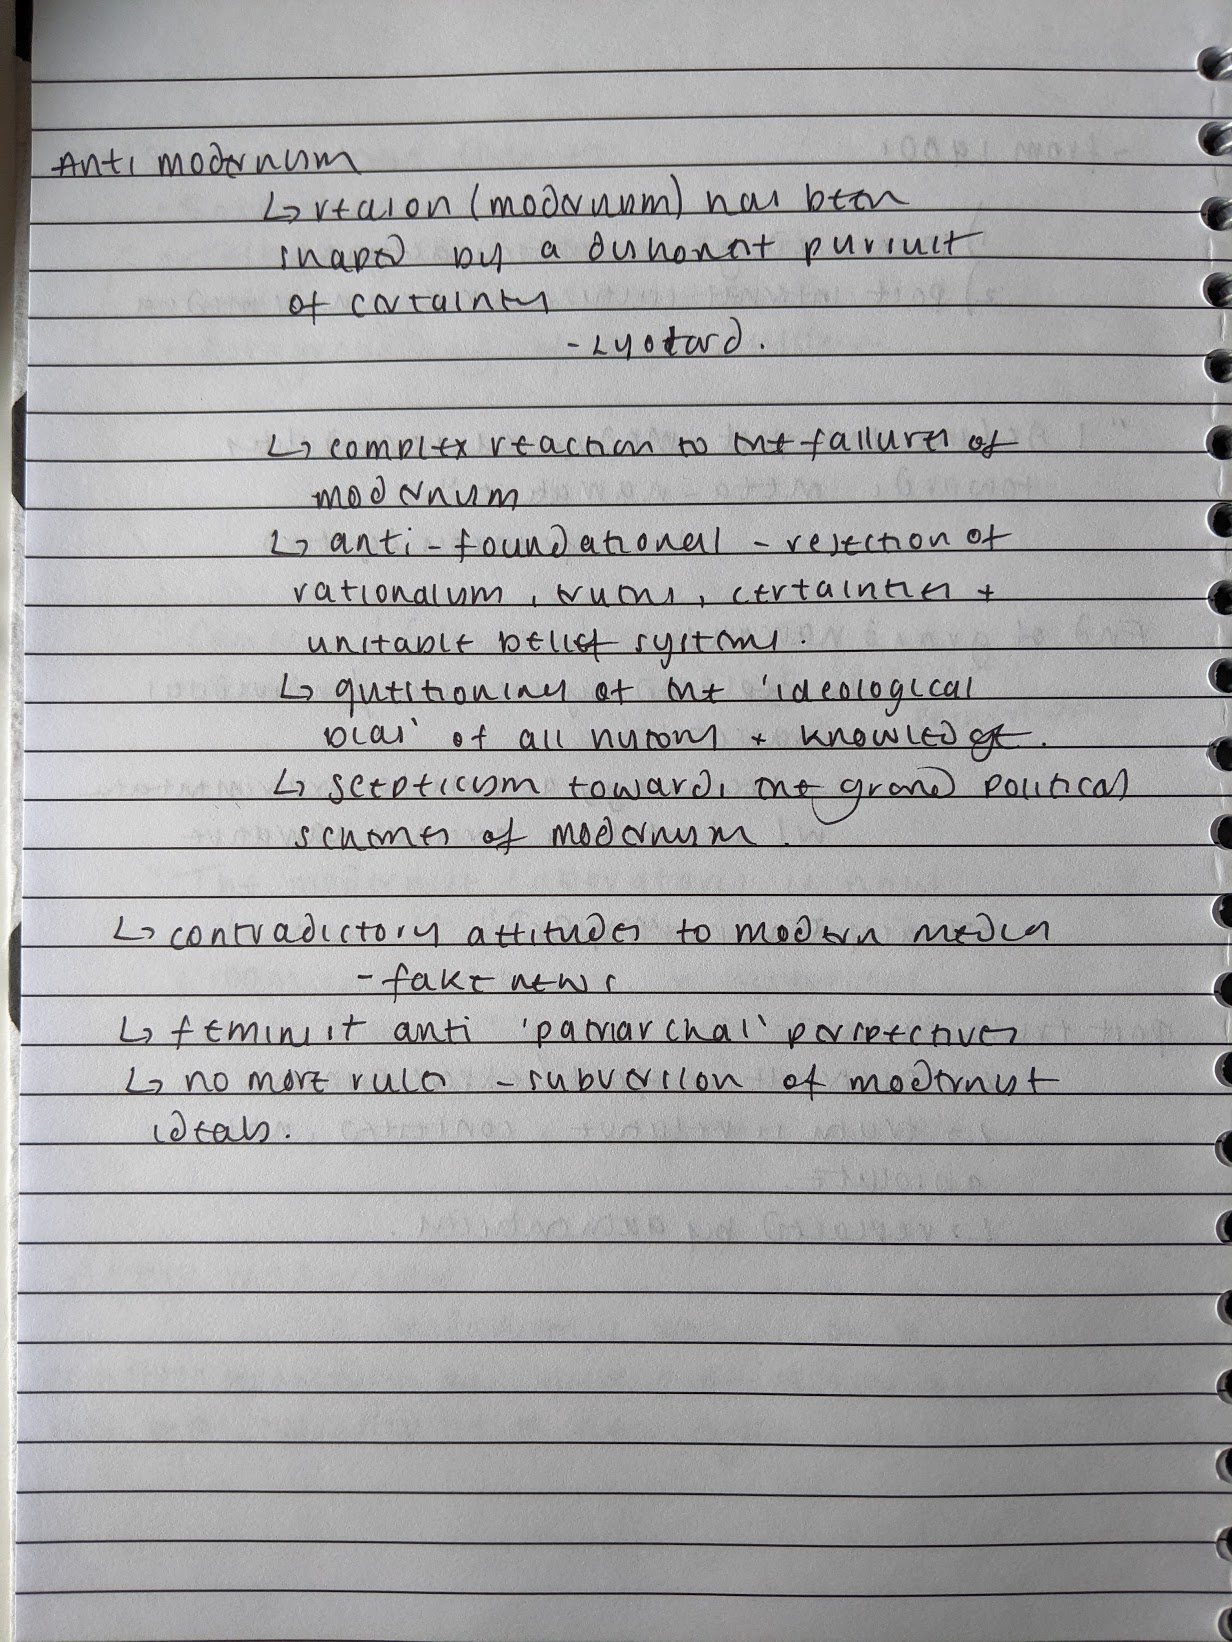 Anti modernism
↳ reason (modernism) has been
shaped by a dishonest pursuit
of certainty
- Lyotard.
↳ complex reaction to the failures of
modernism
↳ anti-foundational - rejection of
rationalism, truths, certainties +
unstable belief systems.
↳ questioning of the 'ideological
bias' of all history + knowledge.
↳ scepticism towards the grand political
schemes of modernism.
↳ contradictory attitudes to modern media
- fake news
↳ feminist anti 'patriarchal' perspectives
↳ no more rules - subversion of modernist
ideals.